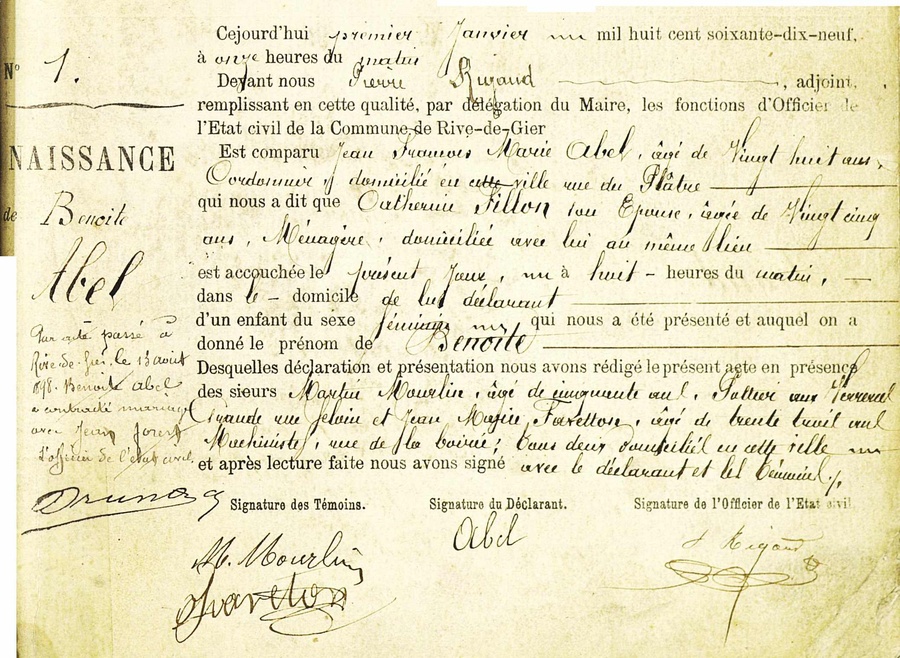 N° 1.
NAISSANCE
de
Benoite
Abel
Par acte passé à
Rive-de-Gier, le 13 août
1898. Benoite Abel
a contracté mariage
avec Jean
L'officier de l'état civil,
Cejourd'hui premier Janvier mil huit cent soixante-dix-neuf,
à onze heures du matin
Devant nous Pierre Rigaud, adjoint,
remplissant en cette qualité, par délégation du Maire, les fonctions d'Officier de
l'Etat civil de la Commune de Rive-de-Gier
Est comparu Jean François Marie Abel, âgé de Vingt huit ans,
Cordonnier, domicilié en cette ville rue du Plâtre
qui nous a dit que Catherine Fillon son Epouse, âgée de Vingt cinq
ans, Ménagère, domiciliée avec lui au même lieu
est accouchée le présent Jour, à huit - heures du matin,
dans le - domicile de lui déclarant
d'un enfant du sexe féminin qui nous a été présenté et auquel on a
donné le prénom de Benoite
Desquelles déclaration et présentation nous avons rédigé le présent acte en présence
des sieurs Martin Mourlin, âgé de cinquante ans,
grande rue et Jean Marie Faretton, âgé de trente trois ans
Machiniste, rue de la ; tous deux domiciliés en cette ville
et après lecture faite nous avons signé avec le déclarant et les témoins ./.
Signature des Témoins.
Signature du Déclarant.
Signature de l'Officier de l'Etat civil
Abel
M. Mourlin
P. Rigaud